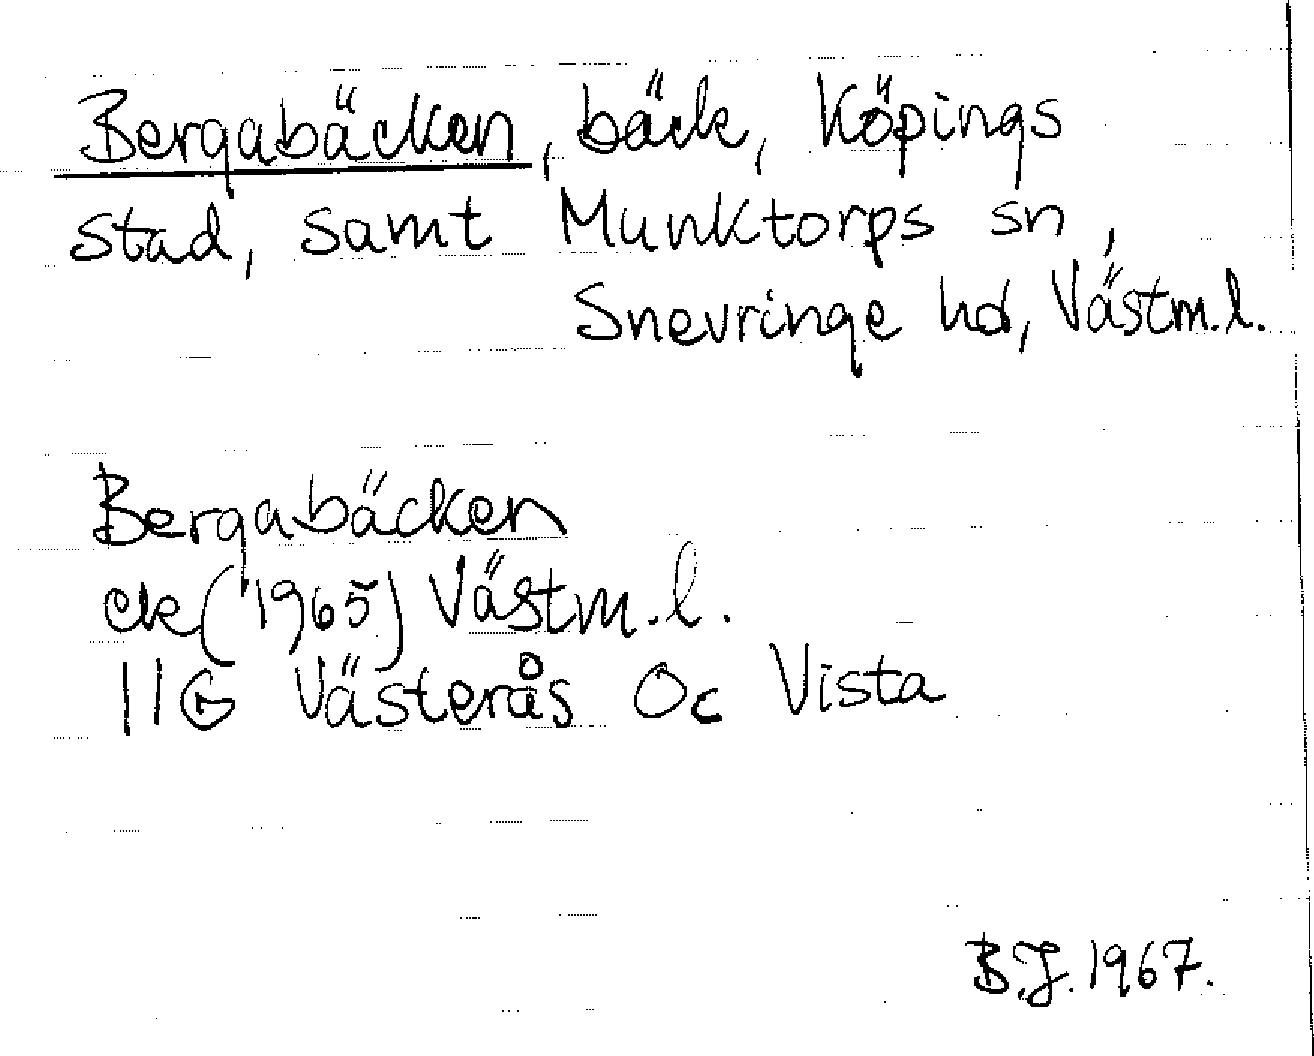 Bergabäcken, bäck, Köpings
stad, samt Munktorps sn,
Snevringe hd, Västm.l.
Bergabäcken
ek (1965) Västm.l.
11G Västerås Oc Vista
B.J. 1967.